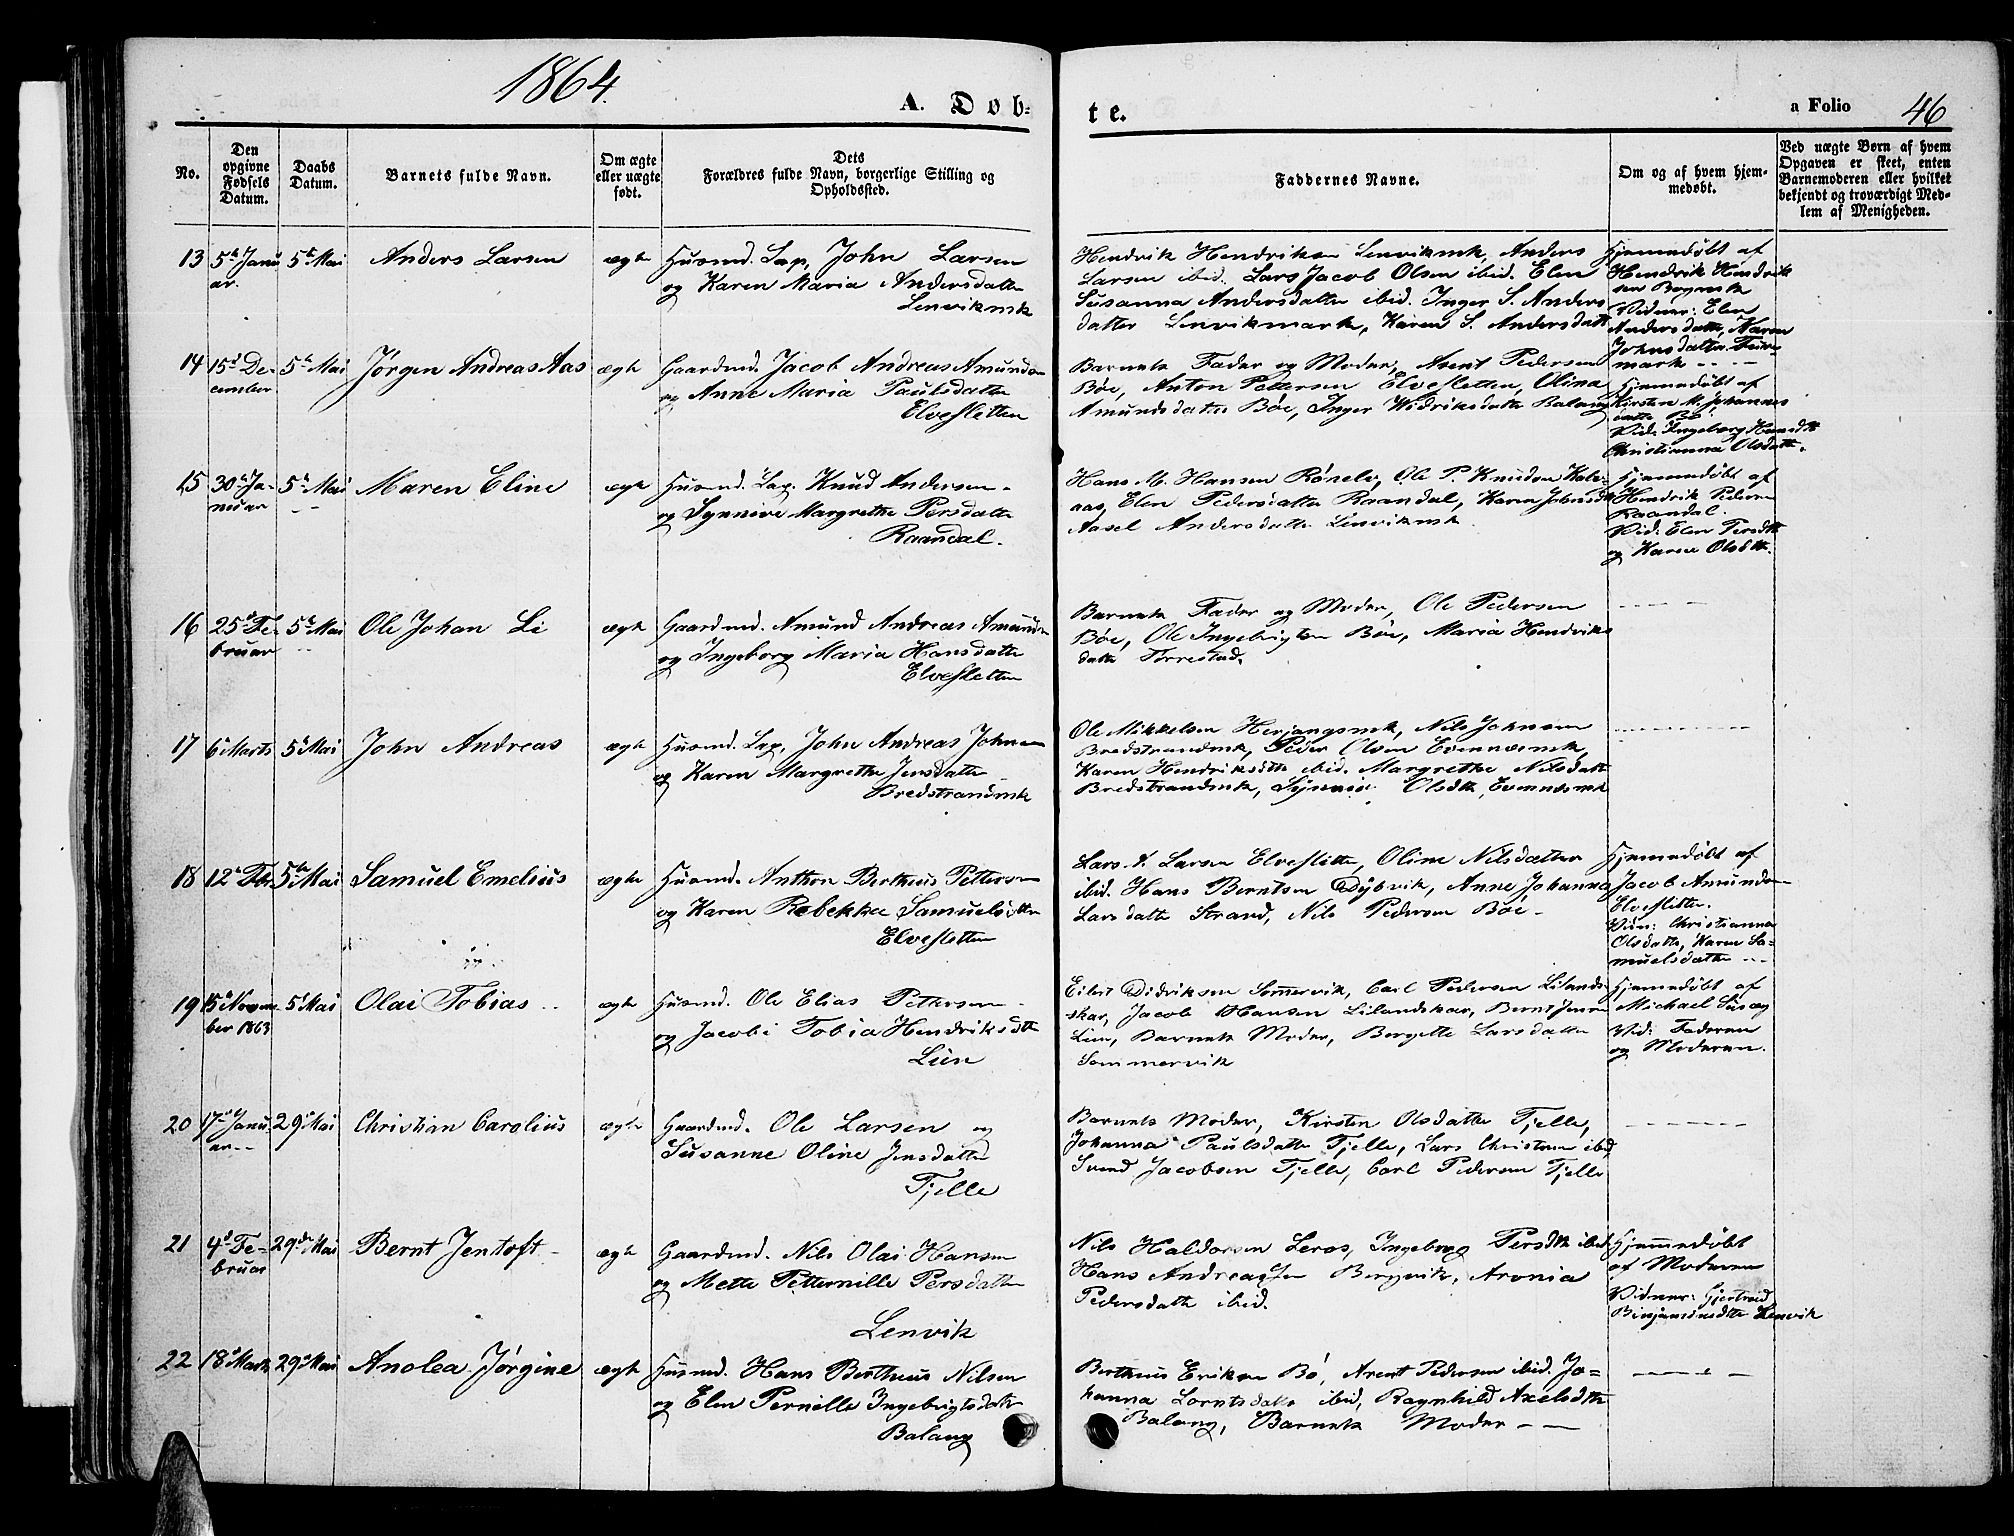 1864.
A. Dob-
te.
a Folio 46
No.
Den opgivne Fødsels Datum.
Daabs Datum.
Barnets fulde Navn.
Om ægte eller uægte født.
Dets Forældres fulde Navn, borgerlige Stilling og Opholdssted.
Faddernes Navne.
Om og af hvem hjemmedøbt.
Ved uægte Børn af hvem Opgaven er skeet, enten Barnemoderen eller hvilket bekjendt og troværdigt Medlem af Menigheden.
13 5te Janu 5te Mai Anders Larsen ægte Husmd. Lap, John Larsen
ar. og Karen Maria Andersdatter
Lenvikmk
Hendrik Hendriksen Lenvikmk, Anders
Larsen ibid. Lars Jacob Olsen ibid. Elen
Susanna Andersdatter ibid. Inger S. Anders
datter Lenvikmark, Karen S. Andersdatt
Hjemmedøbt af
Hendrik Hendrik
sen
Vidner: Elen
Andersdatter, Karen
Johnsdatter
mark
14 15de De- 5te Mai Jørgen Andreas Aas ægte Gaardmd. Jacob Andreas Amundsen
cember og Anne Maria Paulsdatter
Elvesletten
Barnets Fader og Moder, Arent Pedersen
Bøe, Anton Pettersen Elvesletten, Olina
Amundsdatter Bøe, Inger Widriksdatter Balang
Hjemmedøbt af
Kirsten M. Johannes
datter Bø
Vid: Ingeborg Hansdtr
Christianna Olsdatter.
15 30te Ja- 5te Mai Maren Eline ægte Husmd. Lap. Knud Andersen
nuar og Synneve Margrethe Persdatter
Raandal.
Hans M. Hansen , Ole P. Knudsen Kale-
aas, Elen Pedersdatter Raandal, Karen Johnsdt
Aasel Andersdatter Lenvikmk.
Hjemmedøbt af
Hendrik Pedersen
Raandal.
Vid: Elen Persdtr
og Karen Olsdtr.
16 25de Fe- 5te Mai Ole Johan Li ægte Gaardmd. Amund Andreas Amundsen
bruar og Ingeborg Maria Hansdatter
Elvesletten
Barnets Fader og Moder, Ole Pedersen
Bøe, Ole Ingebrigtsen Bøe, Maria Hendriks
datter Forrestad.
17 6te Marts 5te Mai John Andreas ægte Husmd. Lap, John Andreas Johnsen
og Karen Margrethe Jensdatter
Bredstrandmk
Ole Mikkelsen Herjangsmk, Nils Johnsen
Bredstrandmk, Peder Olsen Evennesmk,
Karen Hendriksdtr ibid. Margrethe Nilsdatter
Bredstrandmk, Synneve Olsdtr, Evennesmk
18 12te Febr 5te Mai Samuel Emelius ægte Husmd. Anthon Berthius Pettersen
og Karen Rebekka Samuelsdtr
Elvesletten
Lars A. Larsen Elveslette, Oline Nilsdatter
ibid. Hans Berntsen Dybvik, Anne Johanna
Larsdatter Strand, Nils Pedersen Bøe
Hjemmedøbt af
Jacob Amundsen
Elveslette.
Vidn: Christianna
Olsdatter, Karen Sa-
muelsdatter
19 15de Novem 5te Mai Olai Tobias ægte Husmd. Ole Elias Pettersen
ber 1863 og Jacobi Tobia Hendriksdtr
Liin
Eilert Didriksen Sommervik, Carl Pedersen Lilands-
skar, Jacob Hansen Lilandskar, Bernt Jensen
Liin, Barnets Moder, Bergitte Larsdatter
Sommervik
Hjemmedøbt af
Michael
Vid: Faderen
og Moderen.
20 17de Janu 29de Mai Christian Carolius ægte Gaardmd. Ole Larsen og
ar Susanne Oline Jensdatter
Fjelle
Barnets Moder, Kirsten Olsdatter Fjelle,
Johanna Paulsdatter Fjelle, Lars Christensen ibid,
Svend Jacobsen Fjelle, Carl Pedersen Fjelle
21 4de Fe- 29de Mai Bernt Jentoft ægte Gaardmd. Nils Olai Hansen
bruar og Mette Petternille Persdatter
Lenvik
Nils Haldorsen Leros, Ingeborg Persdtr ibid.
Hans Andreassen Bergvik, Aronia
Pedersdatter ibid.
Hjemmedøbt
af Moderen
Vidner: Gjertrud
Benjaminsdtr Lenvik
22 18de Marts 29de Mai Anolea Jørgine ægte Husmd. Hans Berthius Nilsen
og Elen Pernille Ingebrigtsdatter
Balang
Berthius Eriksen Bø, Arent Pedersen ibid. Jo-
hanna Lorntsdatter ibid, Ragnhild Axelsdtr
Balang, Barnets Moder